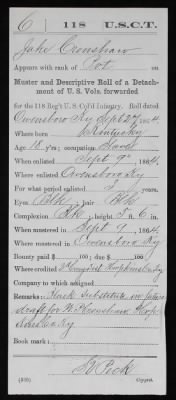 6 | 118 | U.S.C.T.
Jake Crenshaw
Appears with rank of Pvt. on
Muster and Descriptive Roll of a Detach-
ment of U. S. Vols. forwarded
for the 118 Reg't U. S. Col'd Infantry. Roll dated
Owensboro Ky Sept 27, 1864.
Where born Kentucky
Age 18 y'rs; occupation Slave
When enlisted Sept 9, 1864.
Where enlisted Owensboro Ky
For what period enlisted 3 years.
Eyes Blk; hair Blk
Complexion Blk; height 5 ft. 6 in.
When mustered in Sept 9, 1864.
Where mustered in Owensboro Ky
Bounty paid $ 100; due $ 100
Where credited Hopkins Co Ky
Company to which assigned
Remarks: Slave Substitute in future
draft for W. Crenshaw
Co Ky
Book mark:
Peck
(339) Copyist.